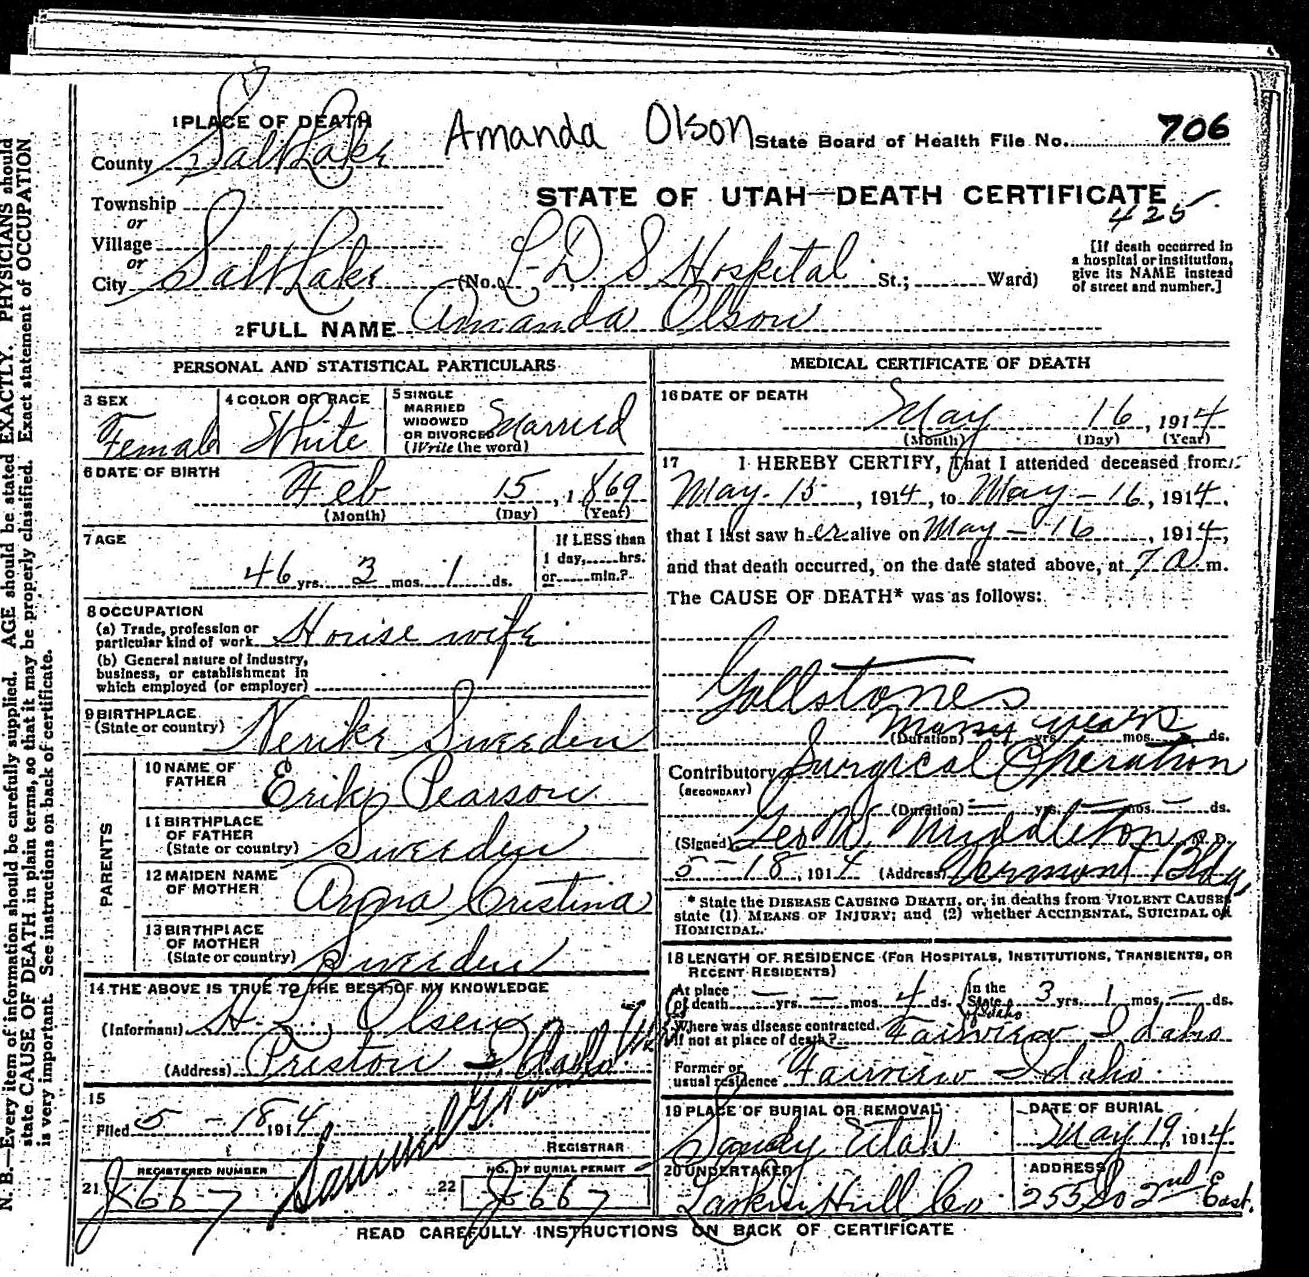 N. B.—Every item of information should be carefully supplied. AGE should be stated EXACTLY. PHYSICIANS should
state CAUSE OF DEATH in plain terms, so that it may be properly classified. Exact statement of OCCUPATION
is very important. See instructions on back of certificate.
1 PLACE OF DEATH
Amanda Olson
State Board of Health File No. 706
County Salt Lake
STATE OF UTAH—DEATH CERTIFICATE
425
Township
or
Village
or
City Salt Lake (No. L-D. S Hospital St.; Ward)
[If death occurred in
a hospital or institution,
give its NAME instead
of street and number.]
2 FULL NAME Amanda Olson
PERSONAL AND STATISTICAL PARTICULARS
3 SEX
Female
4 COLOR OR RACE
White
5 SINGLE
MARRIED
WIDOWED
OR DIVORCED
(Write the word)
Married
6 DATE OF BIRTH
Feb 15, 1869
(Month) (Day) (Year)
7 AGE
46 yrs. 3 mos. 1 ds.
If LESS than
1 day, hrs.
or min.?
8 OCCUPATION
(a) Trade, profession or
particular kind of work House wife
(b) General nature of industry,
business, or establishment in
which employed (or employer)
9 BIRTHPLACE
(State or country) Nerike Sweeden
PARENTS
10 NAME OF
FATHER Erik Pearson
11 BIRTHPLACE
OF FATHER
(State or country) Sweeden
12 MAIDEN NAME
OF MOTHER Anna Cristina
13 BIRTHPLACE
OF MOTHER
(State or country) Sweeden
14 THE ABOVE IS TRUE TO THE BEST OF MY KNOWLEDGE
(Informant) H. L. Olsen
(Address) Preston Idaho
15
Filed 5-18 1914
REGISTRAR
REGISTERED NUMBER
21 J667
NO. OF BURIAL PERMIT
22 J667
MEDICAL CERTIFICATE OF DEATH
16 DATE OF DEATH
May 16, 1914
(Month) (Day) (Year)
17 I HEREBY CERTIFY, That I attended deceased from
May-15, 1914, to May-16, 1914,
that I last saw her alive on May-16, 1914,
and that death occurred, on the date stated above, at 7 a. m.
The CAUSE OF DEATH* was as follows:
Gallstones
Many years
(Duration) yrs. mos. ds.
Contributory Surgical Operation
(SECONDARY)
(Duration) — yrs. — mos. — ds.
(Signed) Geo W. Middleton M. D.
5-18, 1914 (Address) Vermont Bldg
* State the DISEASE CAUSING DEATH, or, in deaths from VIOLENT CAUSES
state (1) MEANS OF INJURY; and (2) whether ACCIDENTAL, SUICIDAL OR
HOMICIDAL.
18 LENGTH OF RESIDENCE (FOR HOSPITALS, INSTITUTIONS, TRANSIENTS, OR
RECENT RESIDENTS)
At place
of death — yrs. — mos. 4 ds.
In the
State 3 yrs. 1 mos. — ds.
of Idaho
Where was disease contracted
If not at place of death? Fairview Idaho
Former or
usual residence Fairview Idaho
19 PLACE OF BURIAL OR REMOVAL
Sandy Utah
DATE OF BURIAL
May 19, 1914
20 UNDERTAKER
Larkin Hull Co
ADDRESS
255 So 2nd East.
READ CAREFULLY INSTRUCTIONS ON BACK OF CERTIFICATE